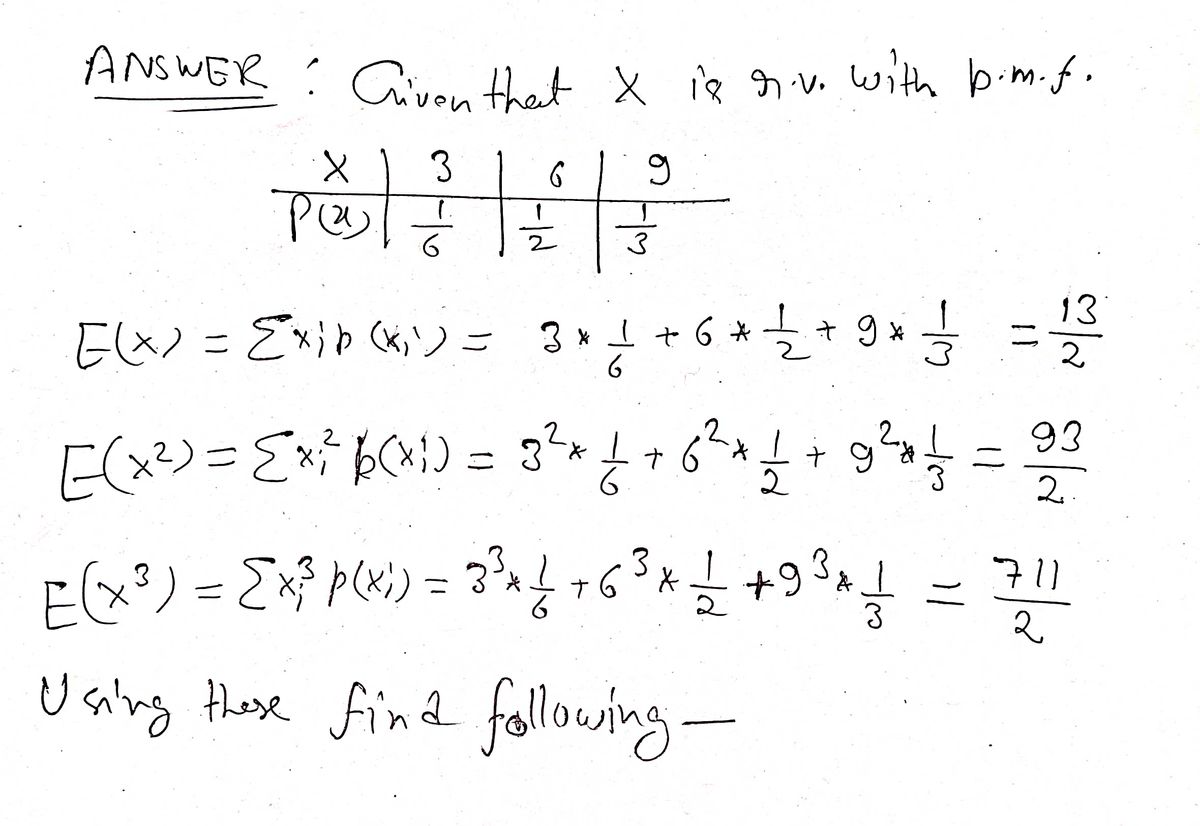 ANSWER : Given that X is r.v. with p.m.f.
X | 3 | 6 | 9
P(x) | 1/6 | 1/2 | 1/3
E(x) = Σxip(xi) = 3 * 1/6 + 6 * 1/2 + 9 * 1/3 = 13/2
E(x²) = Σxi² p(xi) = 3² * 1/6 + 6² * 1/2 + 9² * 1/3 = 93/2
E(x³) = Σxi³ p(xi) = 3³ * 1/6 + 6³ * 1/2 + 9³ * 1/3 = 711/2
Using these find following —